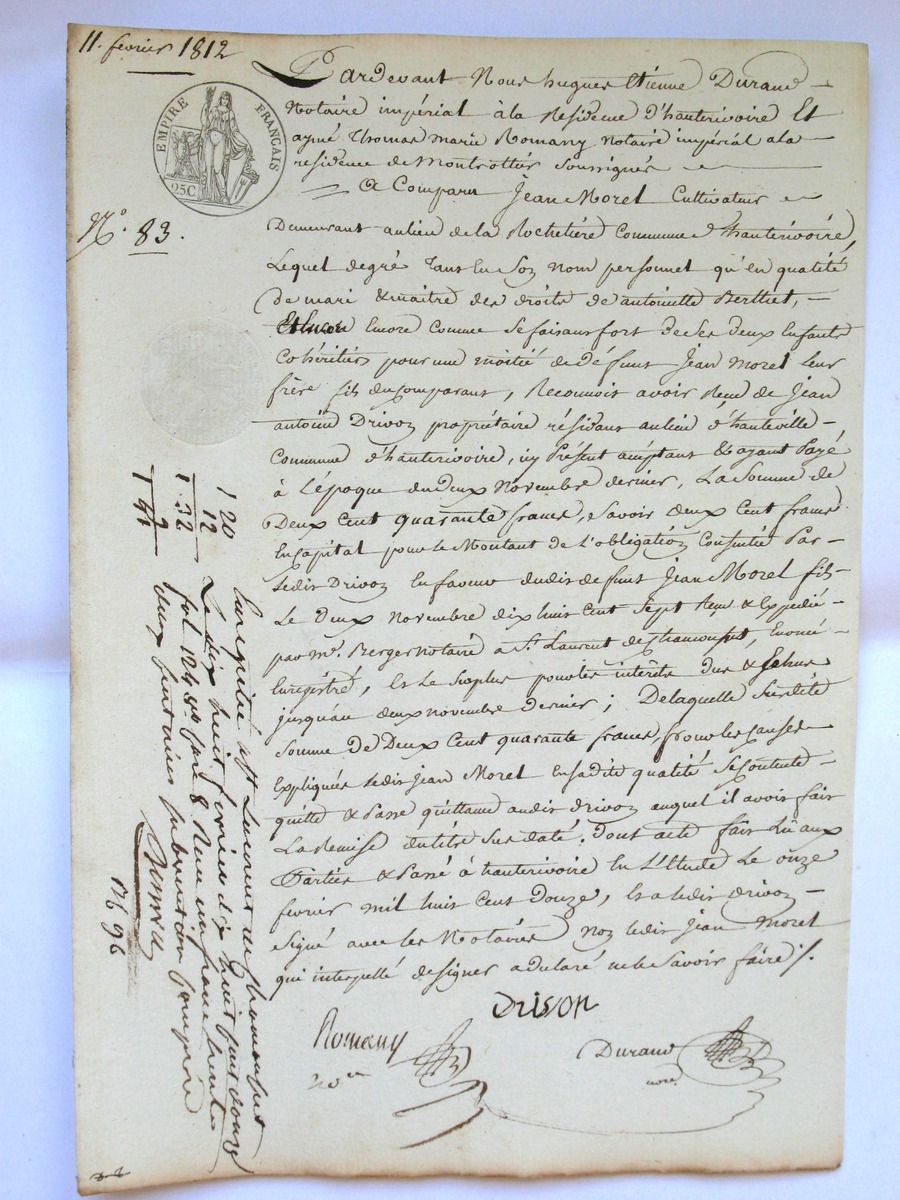 11. fevrier 1812
EMPIRE FRANÇAIS
25C
N.° 83.
Pardevant Nous hugues Etienne Durand
Notaire impérial à la Residence d'hauterivoire Et
aymé Thomas marie Romany notaire impérial a la
residence de Montrottier soussignés
A Comparu Jean Morel Cultivateur
Demeurant au lieu de la Rochetiere Commune d'hauterivoire,
Lequel de gré tant En Son nom personnel qu'en qualité
de mari & maitre des droits de antoinette Berthet,
Encore comme se faisant fort de ses deux Enfants
Cohéritiers pour une moitié de défunt Jean Morel leur
frère fils du comparant, Reconnoit avoir Reçu de Jean
antoine Drivon propriétaire résidant au lieu d'hauteville
Commune d'hauterivoire, icy Présent acceptant & ayant Payé
à l'époque du deux Novembre dernier, La Somme de
Deux Cent quarante francs, Savoir deux Cent francs
En Capital pour le Montant de L'obligation Consentie Par
ledit Drivon En faveur dudit defunt Jean Morel fils
Le Deux Novembre dix huit Cent Sept Reçu & Expedié
par M.e Berger notaire a S.t Laurent de Chamousset,
Enregistré, Et le Surplus pour les intérêts dus &
jusqu'au deux novembre dernier; De laquelle Susdite
Somme De Deux Cent quarante francs, pour les causes
Expliquées ledit Jean Morel En sadite qualité Se Contente
quitte & Passe quittance audit drivon auquel il avoit fait
La Remise du titre Sus daté. Dont acte fait Lû aux
Parties & Passé à hauterivoire En L'Etude Le onze
fevrier mil huit Cent Douze, Et a ledit drivon
Signé avec les Notaires Non ledit Jean Morel
qui interpellé de signer a declaré ne le Savoir faire ./.
Drivon
Romany
Durand
nore.
1 20
12
1 32
9
1 41
Enregistré à St Laurent de Chamousset
Le dix huit fevrier dix huit cent douze
fol. 124 Ro Case 8 Reçu un franc trente
deux centimes subvention comprise